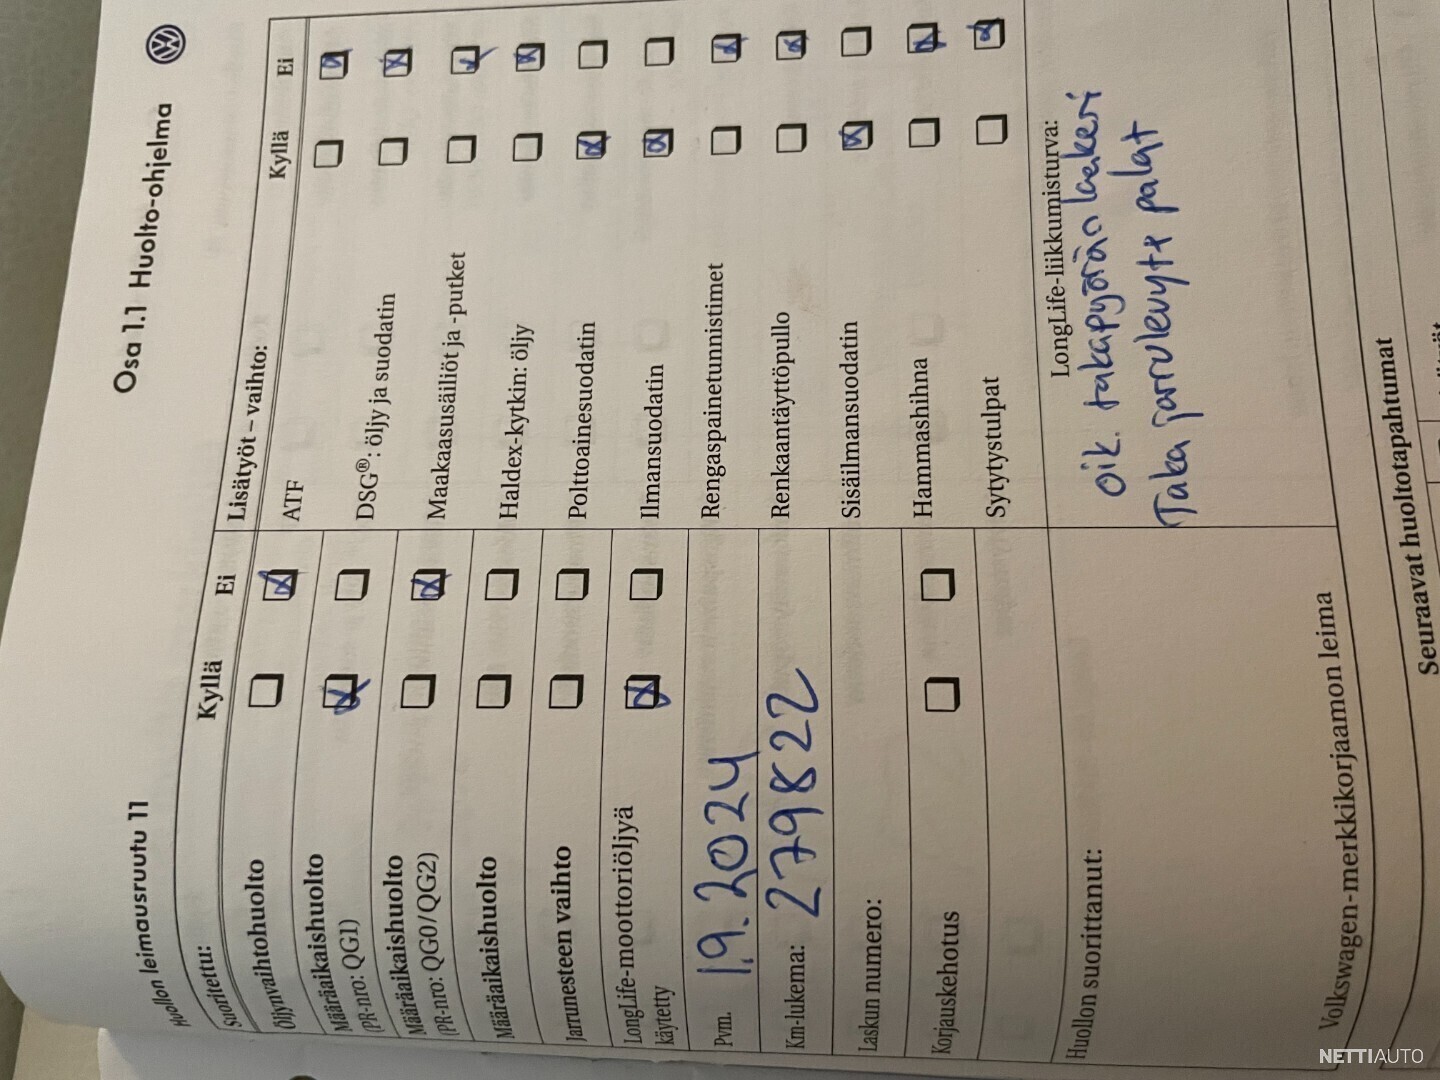 Osa 1.1 Huolto-ohjelma
Huollon leimausruutu 11
Suoritettu:
Kyllä
Ei
Öljynvaihtohuolto
Määräaikaishuolto
(PR-nro: QG1)
Määräaikaishuolto
(PR-nro: QG0/QG2)
Määräaikaishuolto
Jarrunesteen vaihto
LongLife-moottoriöljyä
käytetty
Pvm. 1.9.2024
Km-lukema: 279822
Laskun numero:
Korjauskehotus
Huollon suorittanut:
Volkswagen-merkkikorjaamon leima
Lisätyöt – vaihto:
Kyllä
Ei
ATF
DSG®: öljy ja suodatin
Maakaasusäiliöt ja -putket
Haldex-kytkin: öljy
Polttoainesuodatin
Ilmansuodatin
Rengaspainetunnistimet
Renkaantäyttöpullo
Sisäilmansuodatin
Hammashihna
Sytytystulpat
LongLife-liikkumisturva:
oik. takapyörän laakeri
Taka jarrulevyt+ palat
Seuraavat huoltotapahtumat
NETTIAUTO